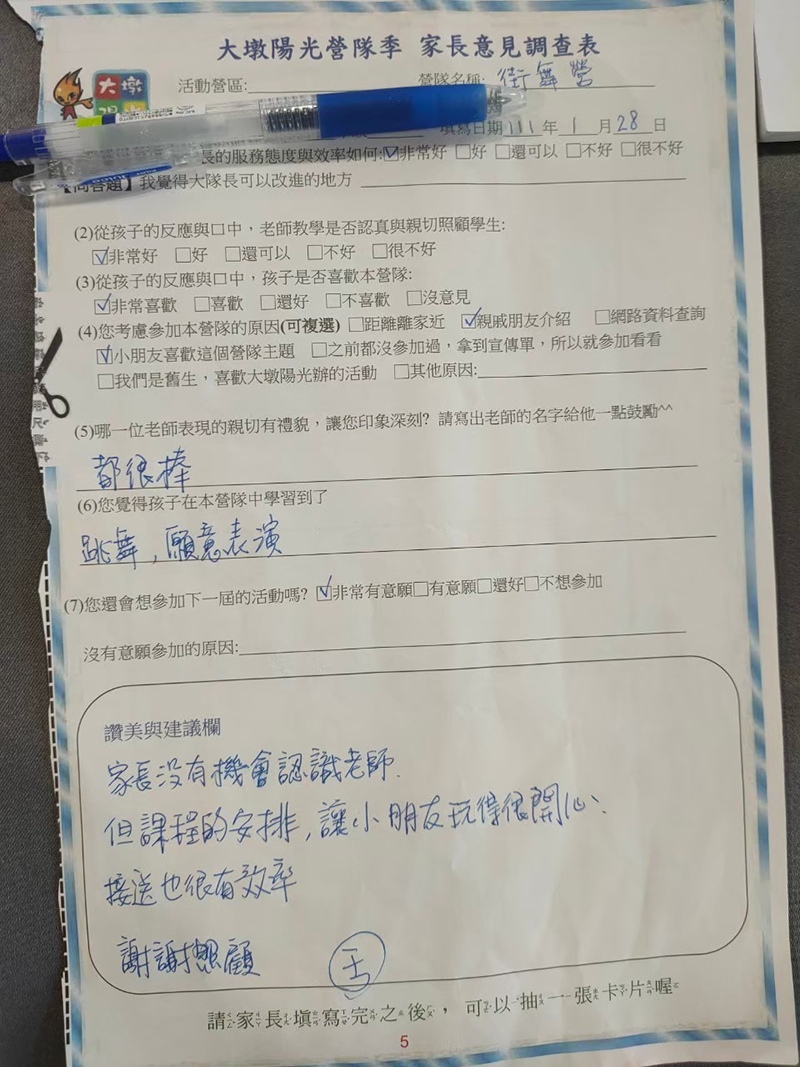 大墩陽光營隊季 家長意見調查表
大墩
陽光
活動營區: 營隊名稱: 街舞營
填寫日期111年1月28日
長的服務態度與效率如何:☑非常好 □好 □還可以 □不好 □很不好
【問答題】我覺得大隊長可以改進的地方
(2)從孩子的反應與口中,老師教學是否認真與親切照顧學生:
☑非常好 □好 □還可以 □不好 □很不好
(3)從孩子的反應與口中,孩子是否喜歡本營隊:
☑非常喜歡 □喜歡 □還好 □不喜歡 □沒意見
(4)您考慮參加本營隊的原因(可複選) □距離離家近 ☑親戚朋友介紹 □網路資料查詢
☑小朋友喜歡這個營隊主題 □之前都沒參加過,拿到宣傳單,所以就參加看看
□我們是舊生,喜歡大墩陽光辦的活動 □其他原因:
(5)哪一位老師表現的親切有禮貌,讓您印象深刻? 請寫出老師的名字給他一點鼓勵^^
都很棒
(6)您覺得孩子在本營隊中學習到了
跳舞,願意表演
(7)您還會想參加下一屆的活動嗎? ☑非常有意願□有意願□還好□不想參加
沒有意願參加的原因:
讚美與建議欄
家長没有機會認識老師.
但課程的安排,讓小朋友玩得很開心、
接送也很有效率
謝謝照顧
請家長填寫完之後,可以抽一張卡片喔
5